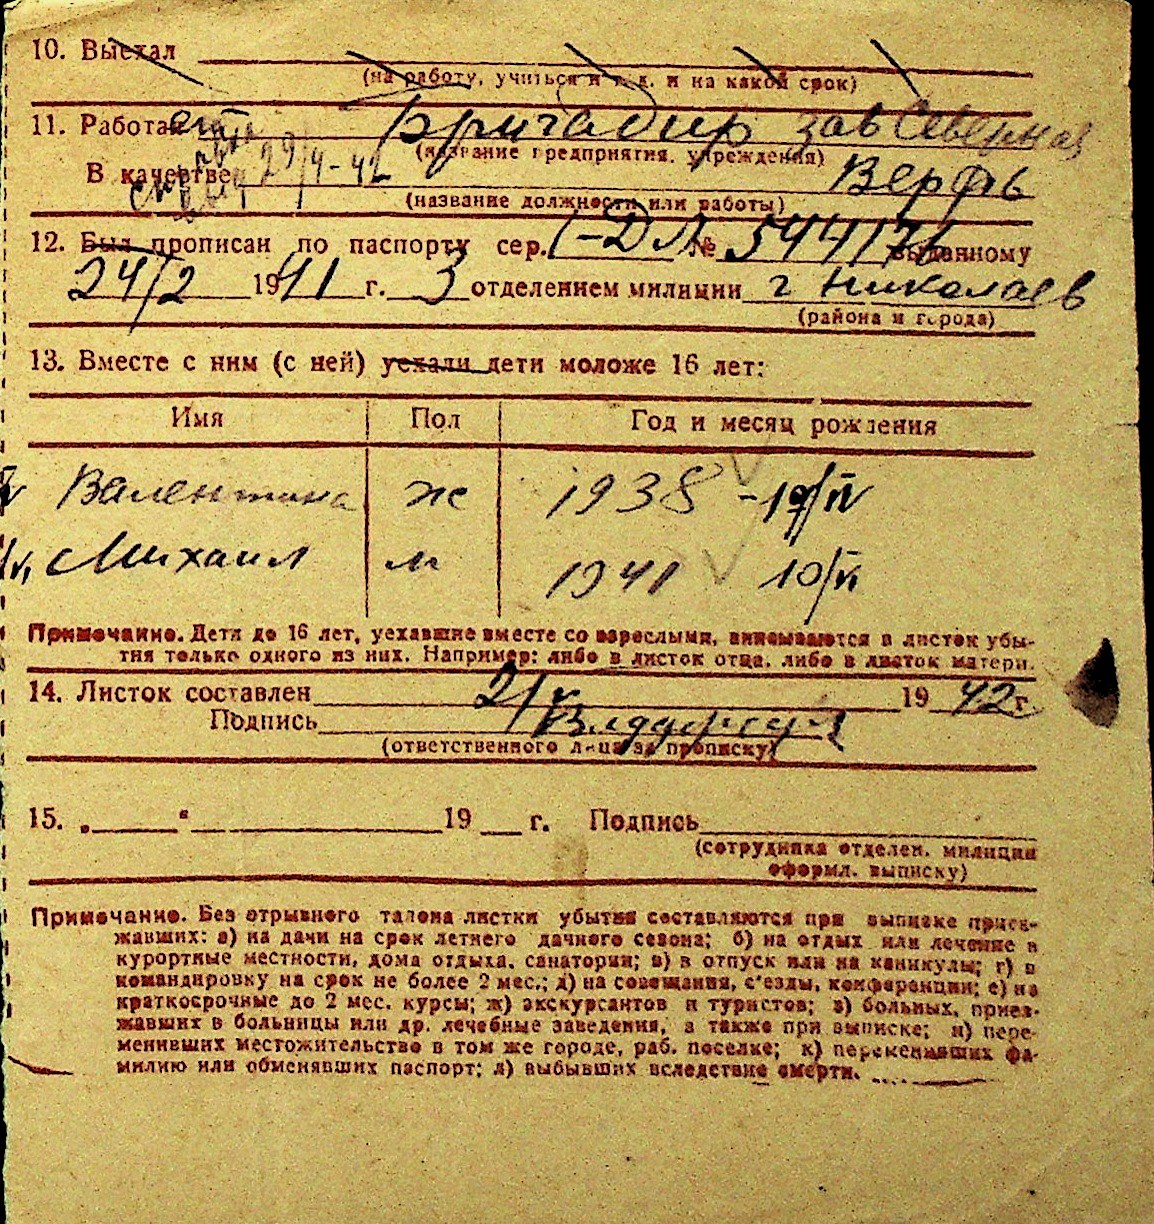 10. Выехал
(на работу, учиться и т. д. и на какой срок)
11. Работает Бригадир зав Северная
(название предприятия, учреждения)
В качестве 29/4-42 Верфь
(название должности или работы)
12. Был прописан по паспорту сер. I-ДЛ № 544176 выданному
24/2 1941 г. 3 отделением милиции г Николаев
(района и города)
13. Вместе с ним (с ней) уехали дети моложе 16 лет:
Имя Пол Год и месяц рождения
Валентина ж 1938 -19/IV
Михаил м 1941 10/VI
Примечание. Дети до 16 лет, уехавшие вместе со взрослыми, вписываются в листок убы-
тия только одного из них. Например: либо в листок отца, либо в листок матери.
14. Листок составлен 2/V 1942 г.
Подпись
(ответственного лица за прописку)
15. „ “ 19 г. Подпись
(сотрудника отделен. милиции
оформл. выписку)
Примечание. Без отрывного талона листки убытия составляются при выписке приез-
жавших: а) на дачи на срок летнего дачного сезона; б) на отдых или лечение в
курортные местности, дома отдыха, санатории; в) в отпуск или на каникулы; г) в
командировку на срок не более 2 мес.; д) на совещания, с'езды, конференции; е) на
краткосрочные до 2 мес. курсы; ж) экскурсантов и туристов; з) больных, приез-
жавших в больницы или др. лечебные заведения, а также при выписке; и) пере-
менивших местожительство в том же городе, раб. поселке; к) переменивших фа-
милию или обменявших паспорт; л) выбывших вследствие смерти.